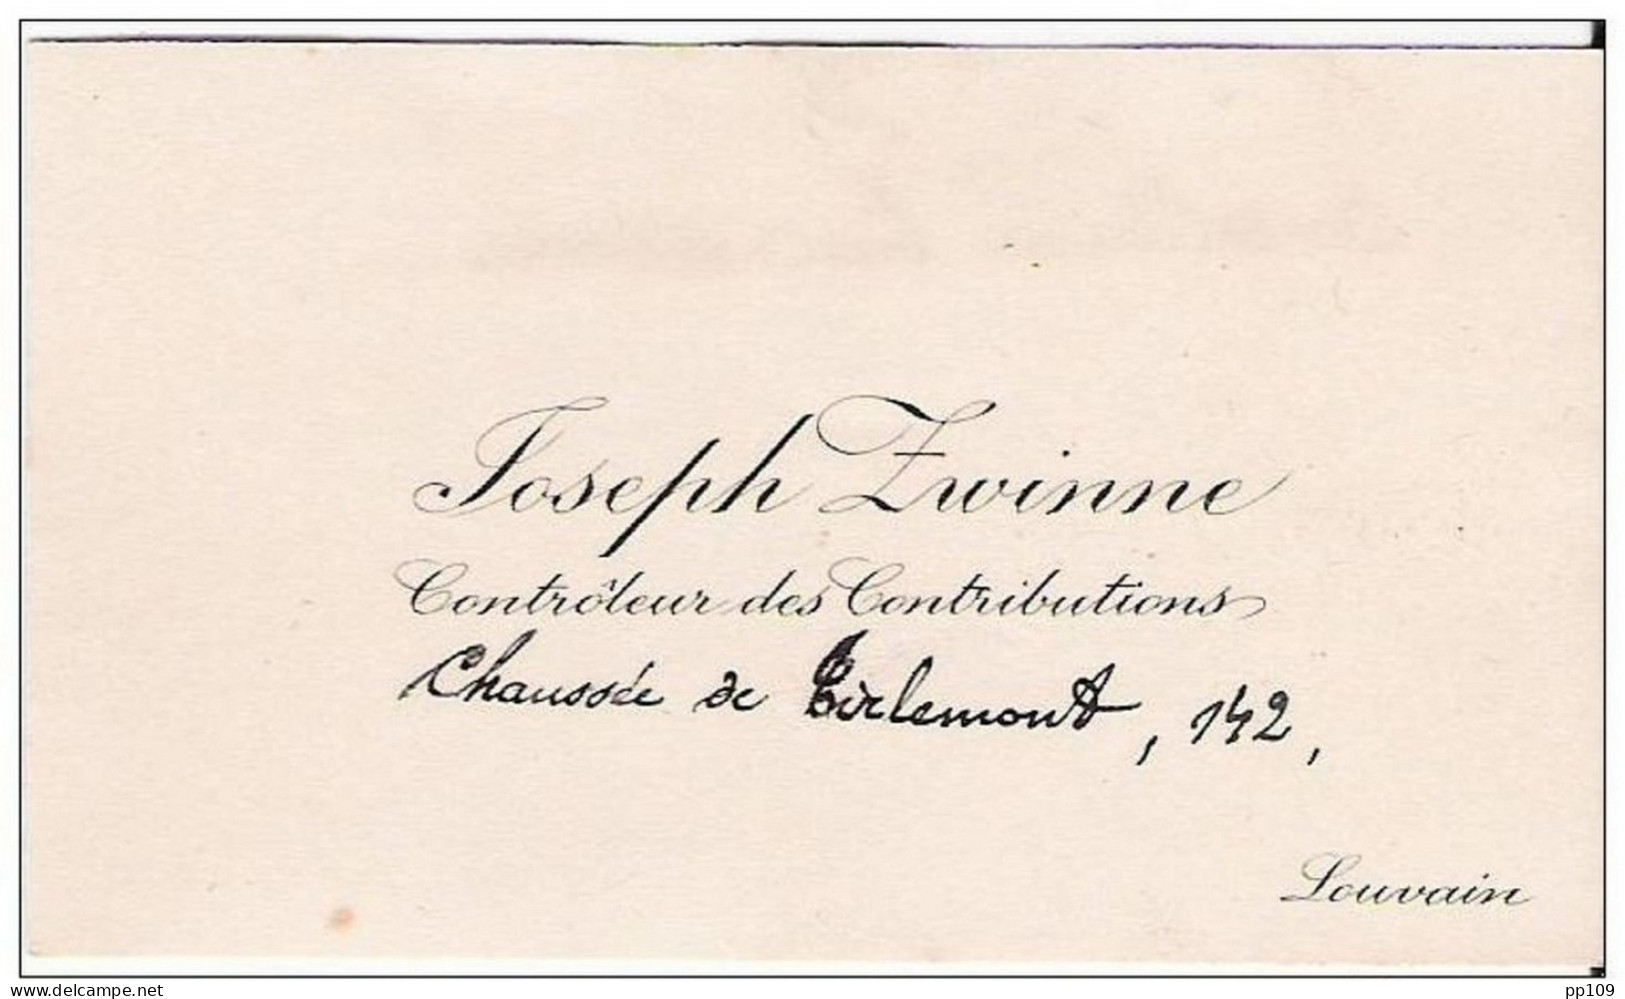 Joseph Zwinne
Contrôleur des Contributions
Chaussée de Tirlemont, 142,
Louvain
www.delcampe.net
pp109